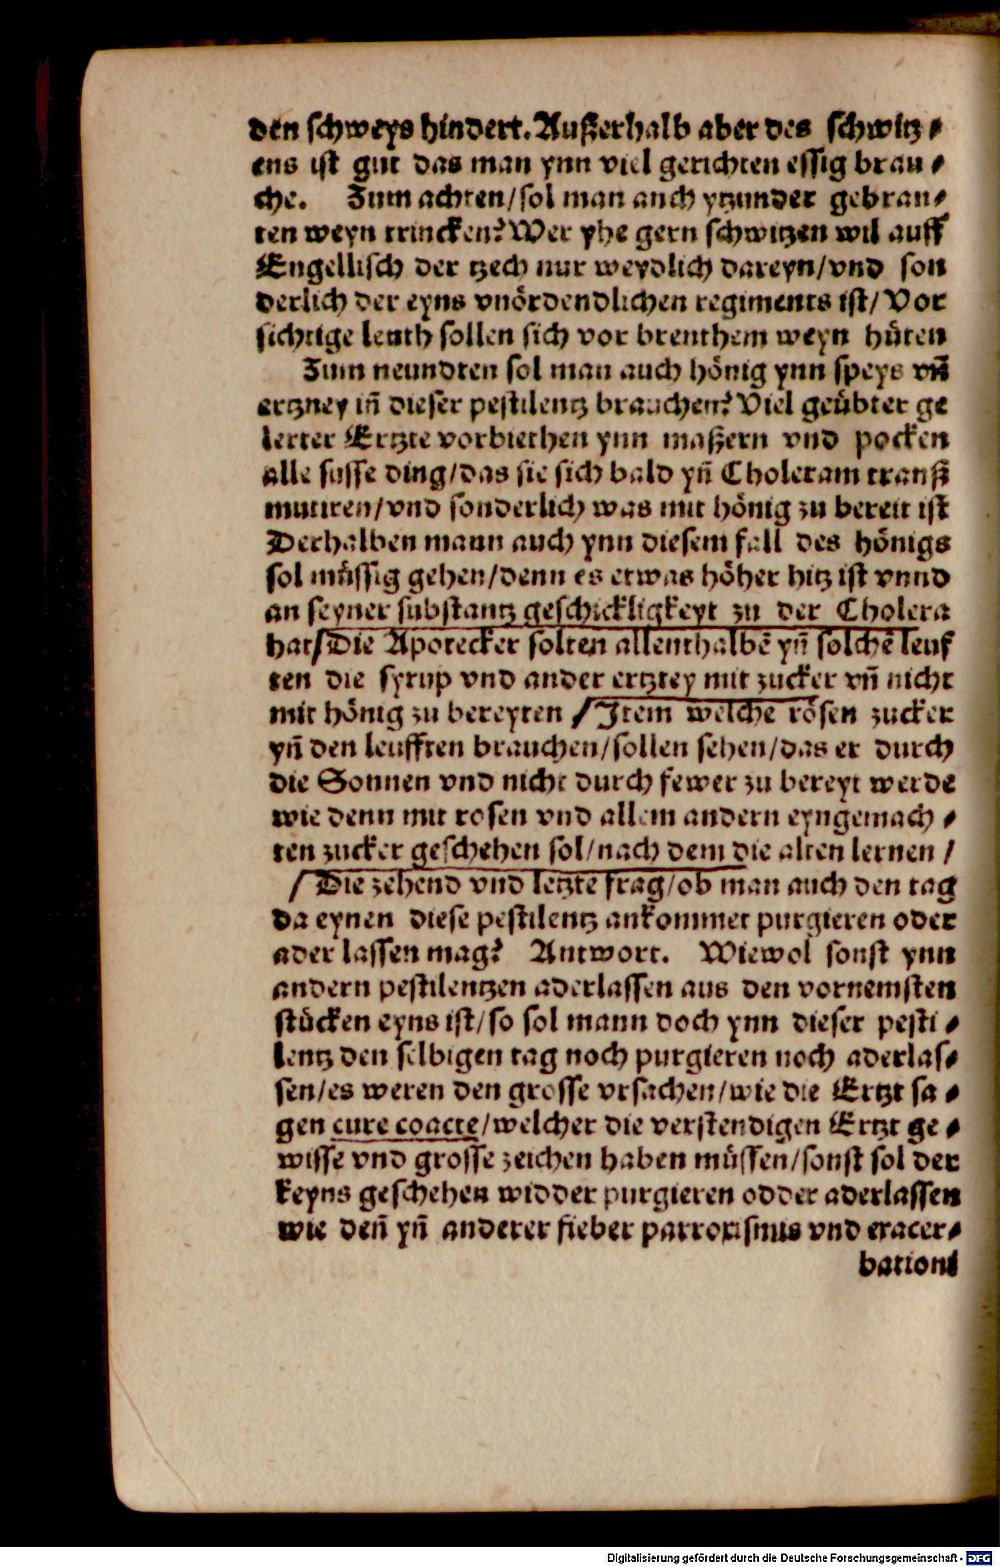 den schweys hindert. Außerhalb aber des schwitz⸗
ens ist gut das man ynn viel gerichten essig brau⸗
che. Zum achten/sol man auch ytzunder gebran⸗
ten weyn trincken? Wer yhe gern schwitzen wil auff
Engellisch der tzech nur weydlich dareyn/vnd son
derlich der eyns vnördendlichen regiments ist/Vor
sichtige leuth sollen sich vor brenthem weyn hüten
Zum neundten sol man auch hönig ynn speys vñ
ertzney iñ dieser pestilentz brauchen? Viel geübter ge
lerter Ertzte vorbiethen ynn maßern vnd pocken
alle susse ding/das sie sich bald yñ Choleram transß
mutiren/vnd sonderlich was mit hönig zu bereit ist
Derhalben mann auch ynn diesem fall des hönigs
sol müssig gehen/denn es etwas höher hitz ist vnnd
an seyner substantz geschickligkeyt zu der Cholera
hat/Die Apotecker solten allenthalbẽ yñ solchẽ leuf
ten die syrup vnd ander ertztey mit zucker vñ nicht
mit hönig zu bereyten /Item welche rosen zucker
yñ den leufften brauchen/sollen sehen/das er durch
die Sonnen vnd nicht durch fewer zu bereyt werde
wie denn mit rosen vnd allem andern eyngemach⸗
ten zucker geschehen sol/nach dem die alten lernen/
/Die zehend vnd letzte frag/ob man auch den tag
da eynen diese pestilentz ankommet purgieren oder
ader lassen mag? Antwort. Wiewol sonst ynn
andern pestilentzen aderlassen aus den vornemsten
stücken eyns ist/so sol mann doch ynn dieser pesti⸗
lentz den selbigen tag noch purgieren noch aderlas⸗
sen/es weren den grosse vrsachen/wie die Ertzt sa⸗
gen cure coacte/welcher die verstendigen Ertzt ge⸗
wisse vnd grosse zeichen haben müssen/sonst sol der
keyns geschehen widder purgieren odder aderlassen
wie deñ yñ anderer fieber parroxismus vnd exacer⸗
bationi
Digitalisierung gefördert durch die Deutsche Forschungsgemeinschaft - DFG